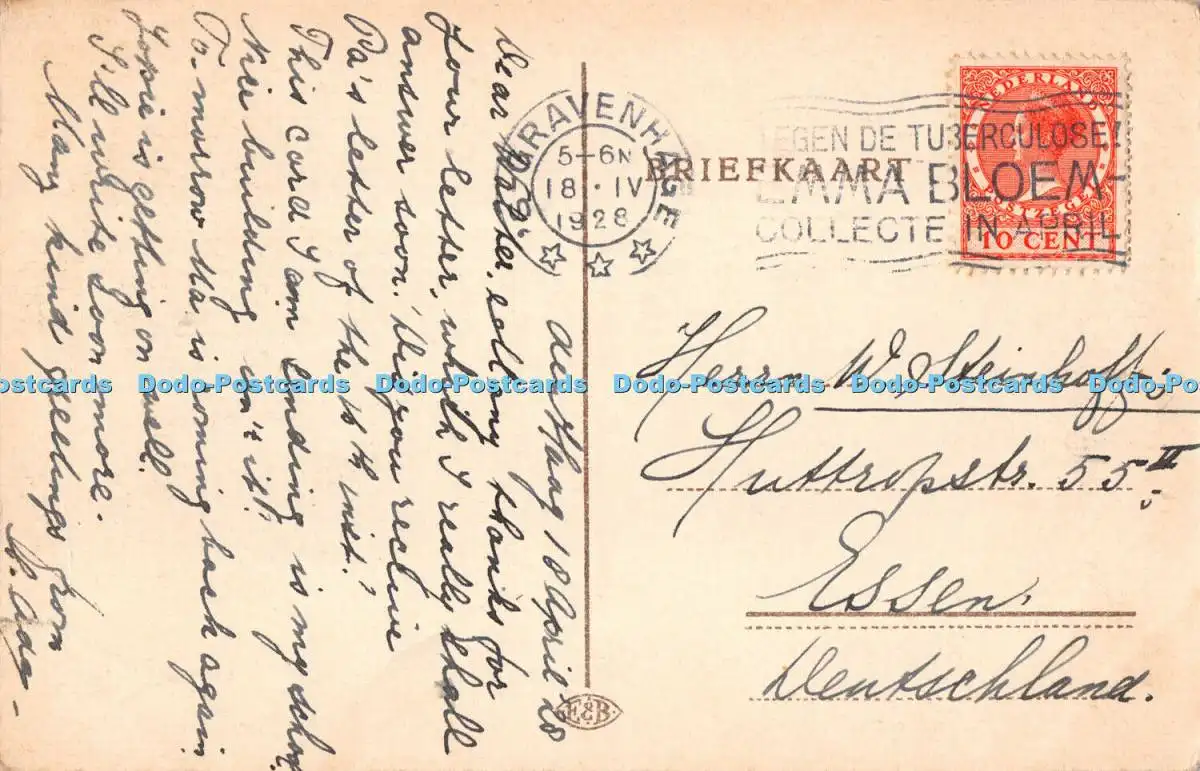 den Haag 18 April 28
Dear Walter, all my thanks for
your letter, which I really shall
answer soon. Did you receive
Pa's letter of the 15th inst.?
This card I am sending is my school.
Nice building isn't it?
To-murrow Ma is coming back again
Loµie is getting on well.
I'll write soon more.
Many kind greetings from
Ada
'S GRAVENHAGE
5-6N
18 . IV
1928
TEGEN DE TUBERCULOSE!
EMMA BLOEM-
COLLECTE IN APRIL
BRIEFKAART
NEDERLAND
POSTZEGEL
10 CENT
Herrn W. Steinhoff
Huttropstr. 55 II
Essen.
Deutschland.
E&B
Dodo-Postcards Dodo-Postcards Dodo-Postcards Dodo-Postcards Dodo-Postcards